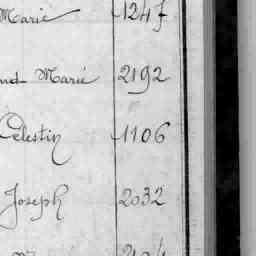 Marie 1247
nd Marie 2192
Célestin 1106
Joseph 2032